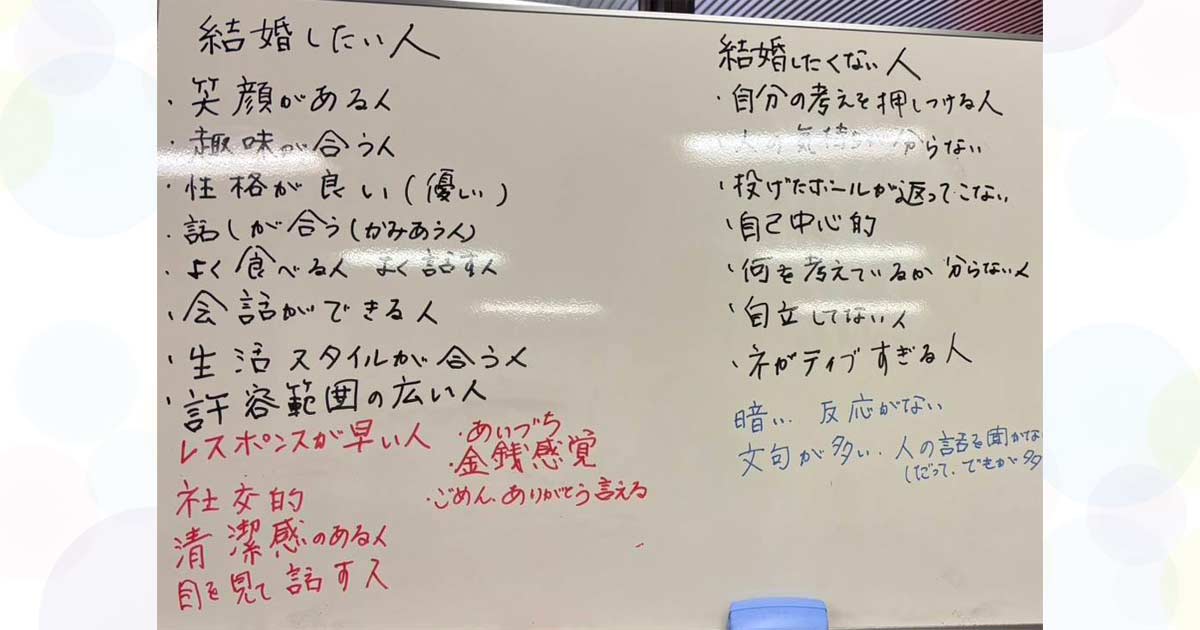 結婚したい人
・笑顔がある人
・趣味が合う人
・性格が良い(優しい)
・話しが合う(かみあう人)
・よく食べる人 よく話す人
・会話ができる人
・生活スタイルが合う人
・許容範囲の広い人
レスポンスが早い人
社交的
清潔感のある人
目を見て話す人
・あいづち
・金銭感覚
・ごめん、ありがとう言える
結婚したくない人
・自分の考えを押しつける人
・人の気持ちが分らない
・投げたボールが返ってこない
・自己中心的
・何を考えているか分らない人
・自立してない人
・ネガティブすぎる人
暗い、反応がない
文句が多い、人の話を聞かな
(だって、でもが多